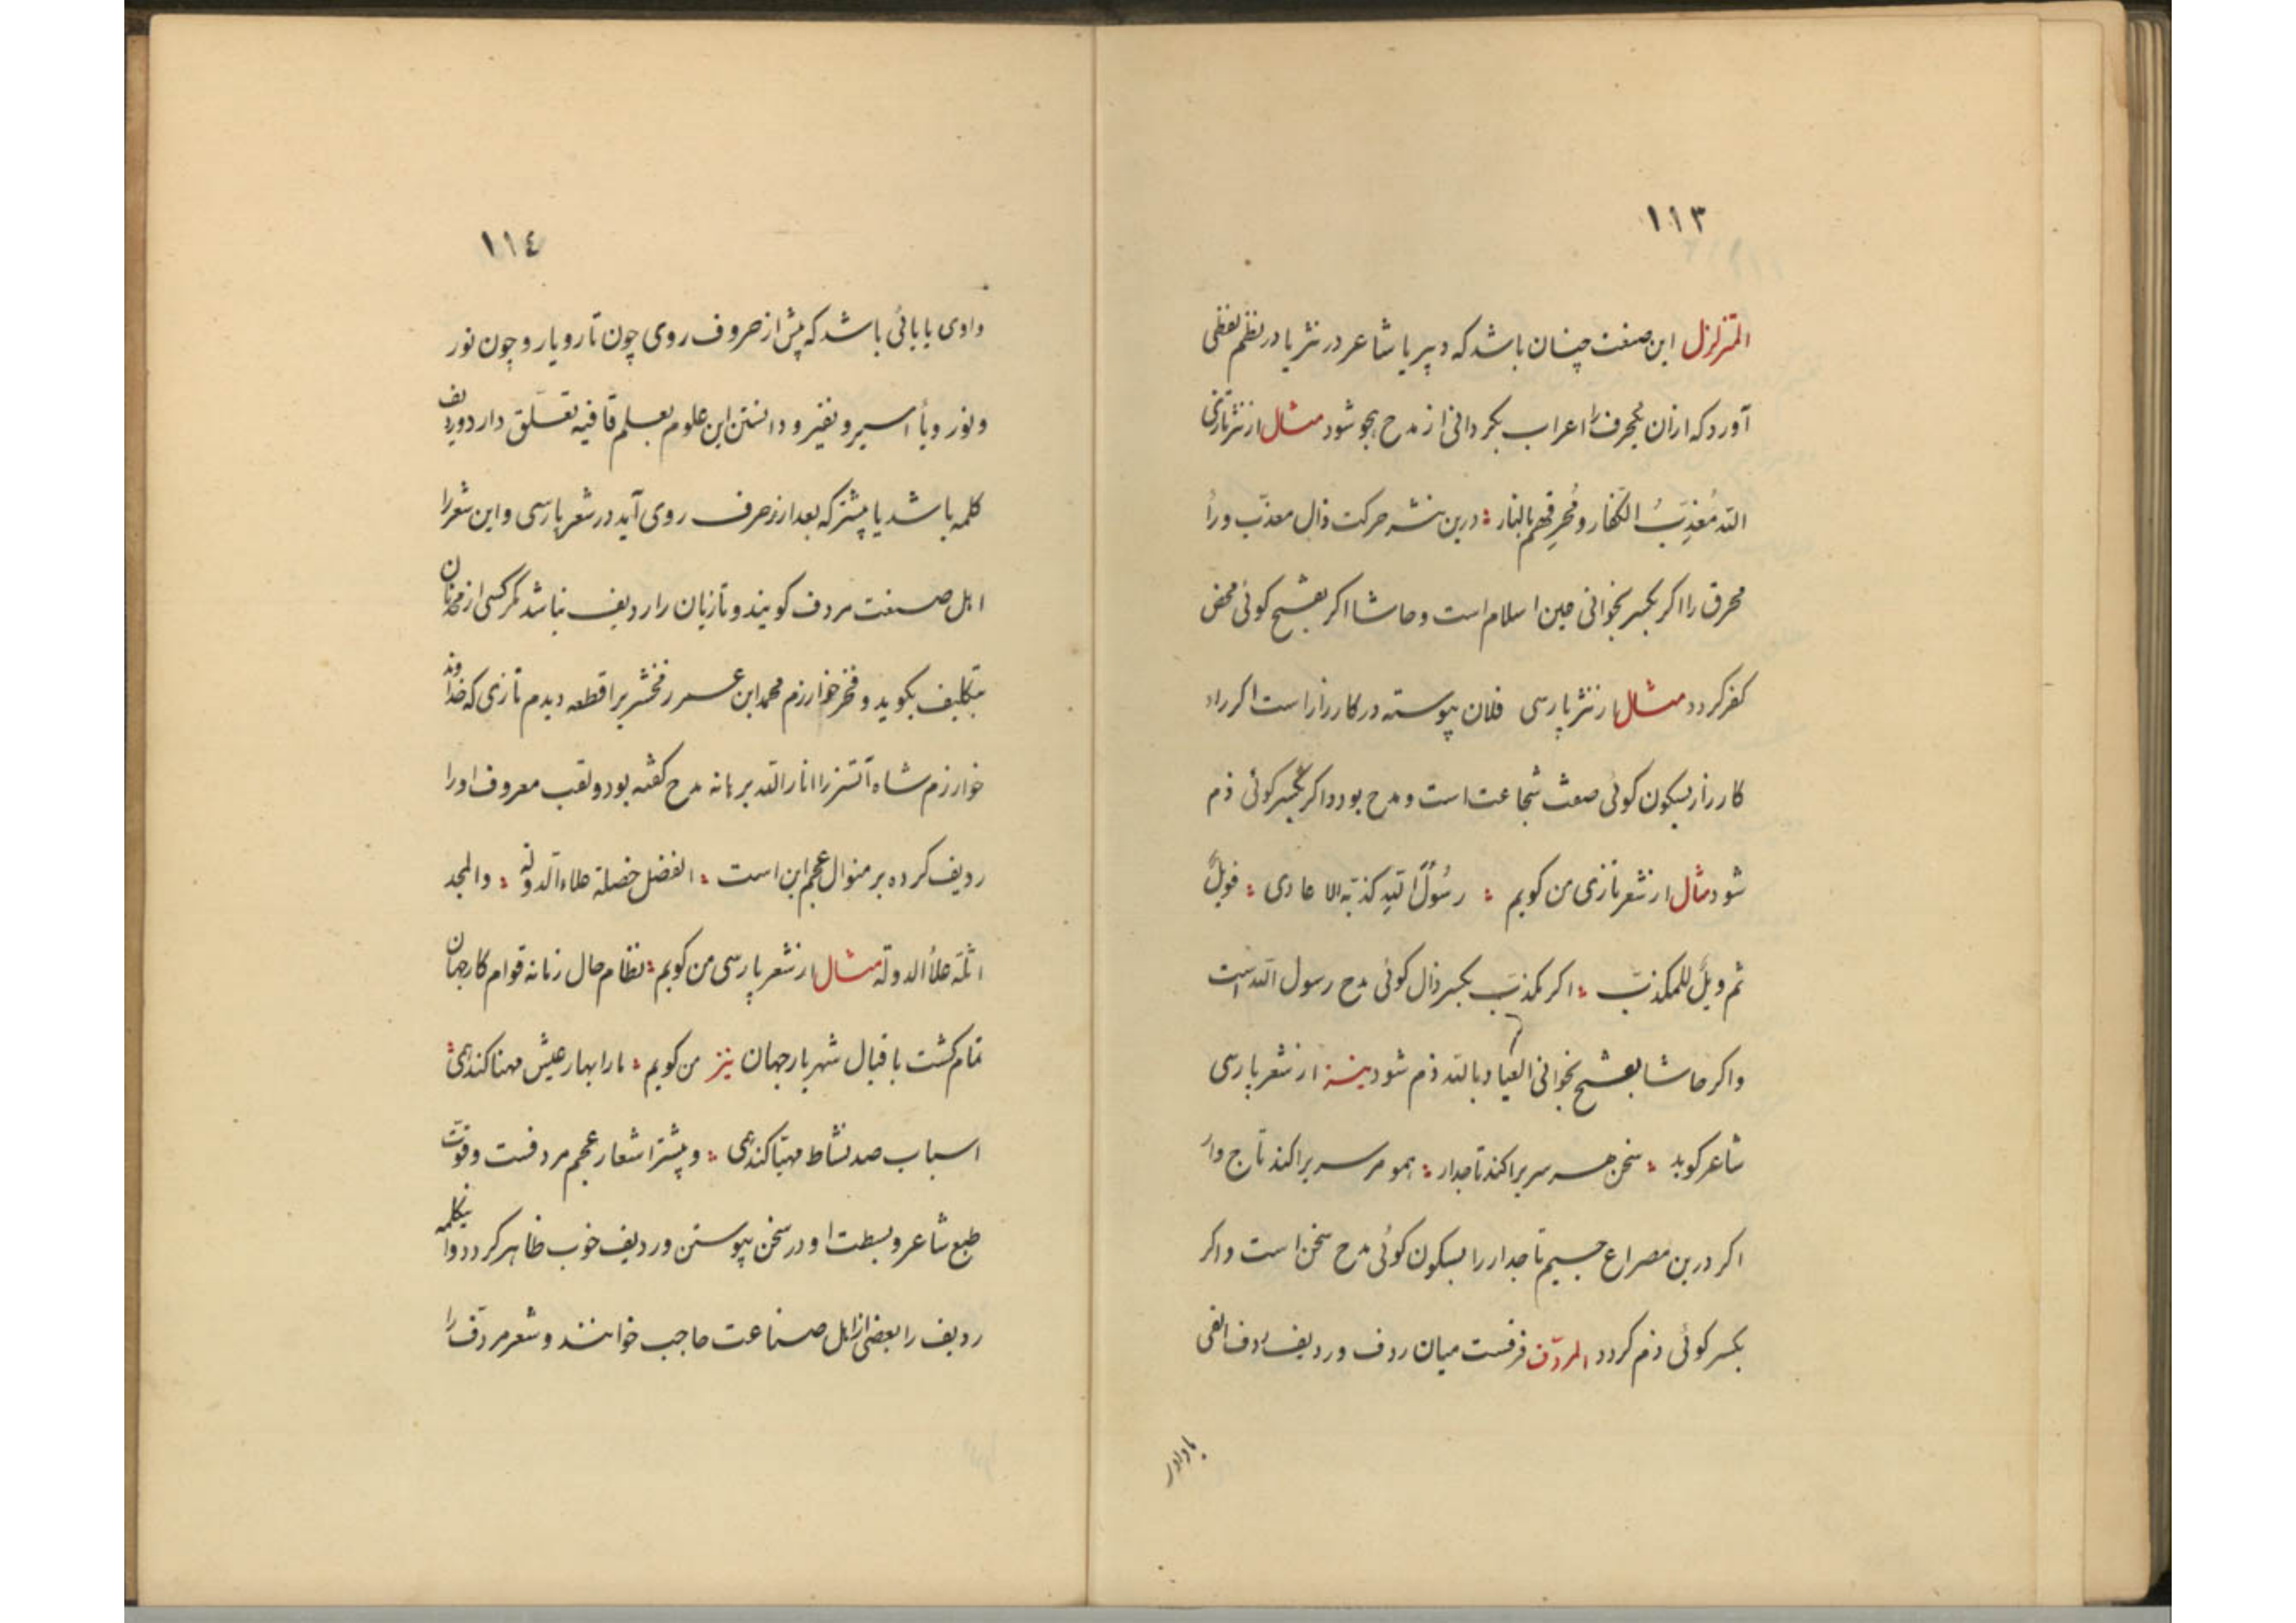 ١١٣
المتزلزل این صنعت چنان باشد که دبیر یا شاعر در نثر یا در نظم لفظی
آورد که ازان یکحرف را اعراب بگردانی از مدح هجو شود مثال از نثر تازی
الله مُعَذِّبُ الکفار و مُحرِقهم بالنار ؛ درین نثر حرکت ذال معذّب و راءِ
محرق را اگر بکسر بخوانی عین اسلام است و حاشا اگر بفتح گوئی محض
کفر گردد مثال از نثر پارسی فلان پیوسته در کارزار است اگر راء
کارزار بسکون گوئی صفت شجاعت است و مدح بود و اگر بکسر گوئی ذم
شود مثال از شعر تازی من گویم ؛ رسُولُ الله کذبّه الاعادی ؛ فویلٌ
ثم ویلٌ للمکذب ؛ اگر مکذب بکسر ذال گوئی مدح رسول الله است
و اگر حاشا بفتح بخوانی العیاد بالله ذم شود نیز از شعر پارسی
شاعر گوید ؛ سخن هر سری را کند تاجدار ؛ همو مر سری را کند تاج دار
اگر درین مصراع جیم تاجدار را بسکون گوئی مدح سخن است و اگر
بکسر گوئی ذم گردد المردّف فرقست میان ردف و ردیف ردف الفی
یا واو
١١٤
واوی یا یائی باشد که پیش از حروف روی چون تار و یار و چون نور
و نور و یا اسیر و نفیر و دانستن این علوم بعلم قافیه تعلّق دارد و ردیف
کلمه باشد یا بیشتر که بعد از حرف روی آید در شعر پارسی و این شعر را
اهل صنعت مردف گویند و تازیان را ردیف نباشد مگر کسی از محدثان
بتکلیف بگوید و فخر خوارزم محمد ابن عمر زمخشریرا قطعه دیدم تازی که خداوند
خوارزم شاه آتسز را انار الله برهانه مدح گفته بود و لقب معروف او را
ردیف کرده بر منوال عجم این است ؛ الفضل حصله علاء الدوله ؛ والمجد
اثله علاُ الدوله مثال از شعر پارسی من گویم ؛ نظام حال زمانه قوام کار جهان
تمام گشت باقبال شهریار جهان نیز من گویم ؛ مارا بهار عیش مهنا کندهمی ؛
اسباب صد نشاط مهیّا کندهمی ؛ و بیشتر اشعار عجم مردفست و قوّت
طبع شاعر و بسطت او در سخن پیوستن و ردیف خوب ظاهر گردد و آن کلمه
ردیف را بعضی از اهل صناعت حاجب خوانند و شعر مردّف را